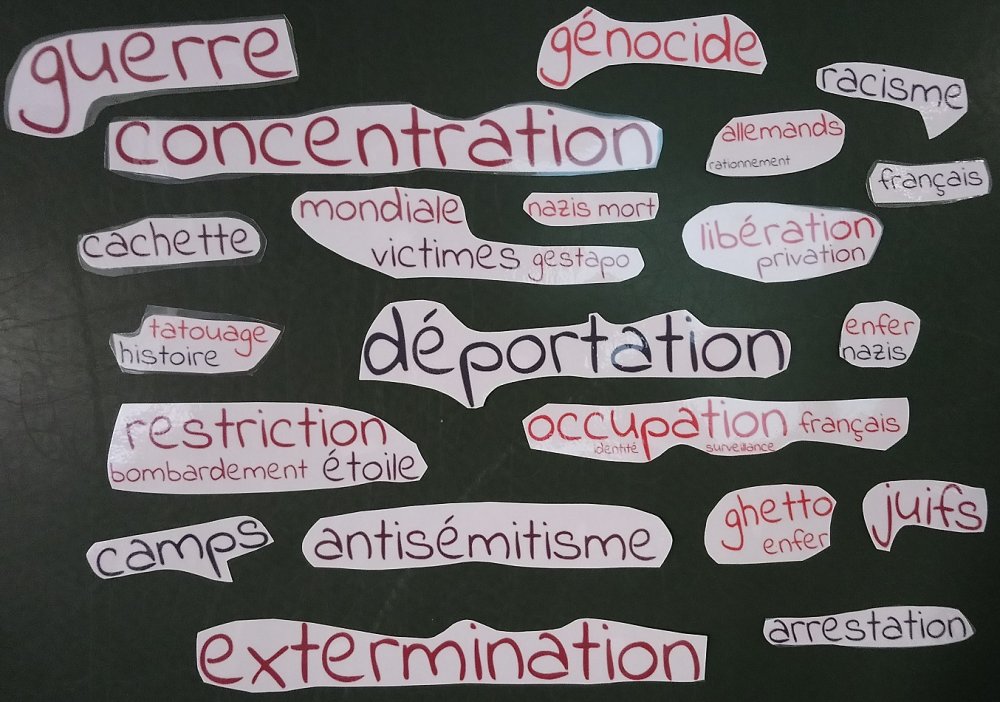 guerre
génocide
racisme
concentration
allemands
rationnement
français
mondiale
nazis mort
cachette
victimes gestapo
libération
privation
tatouage
histoire
déportation
enfer
nazis
restriction
bombardement étoile
occupation français
identité surveillance
camps
antisémitisme
ghetto
enfer
juifs
extermination
arrestation